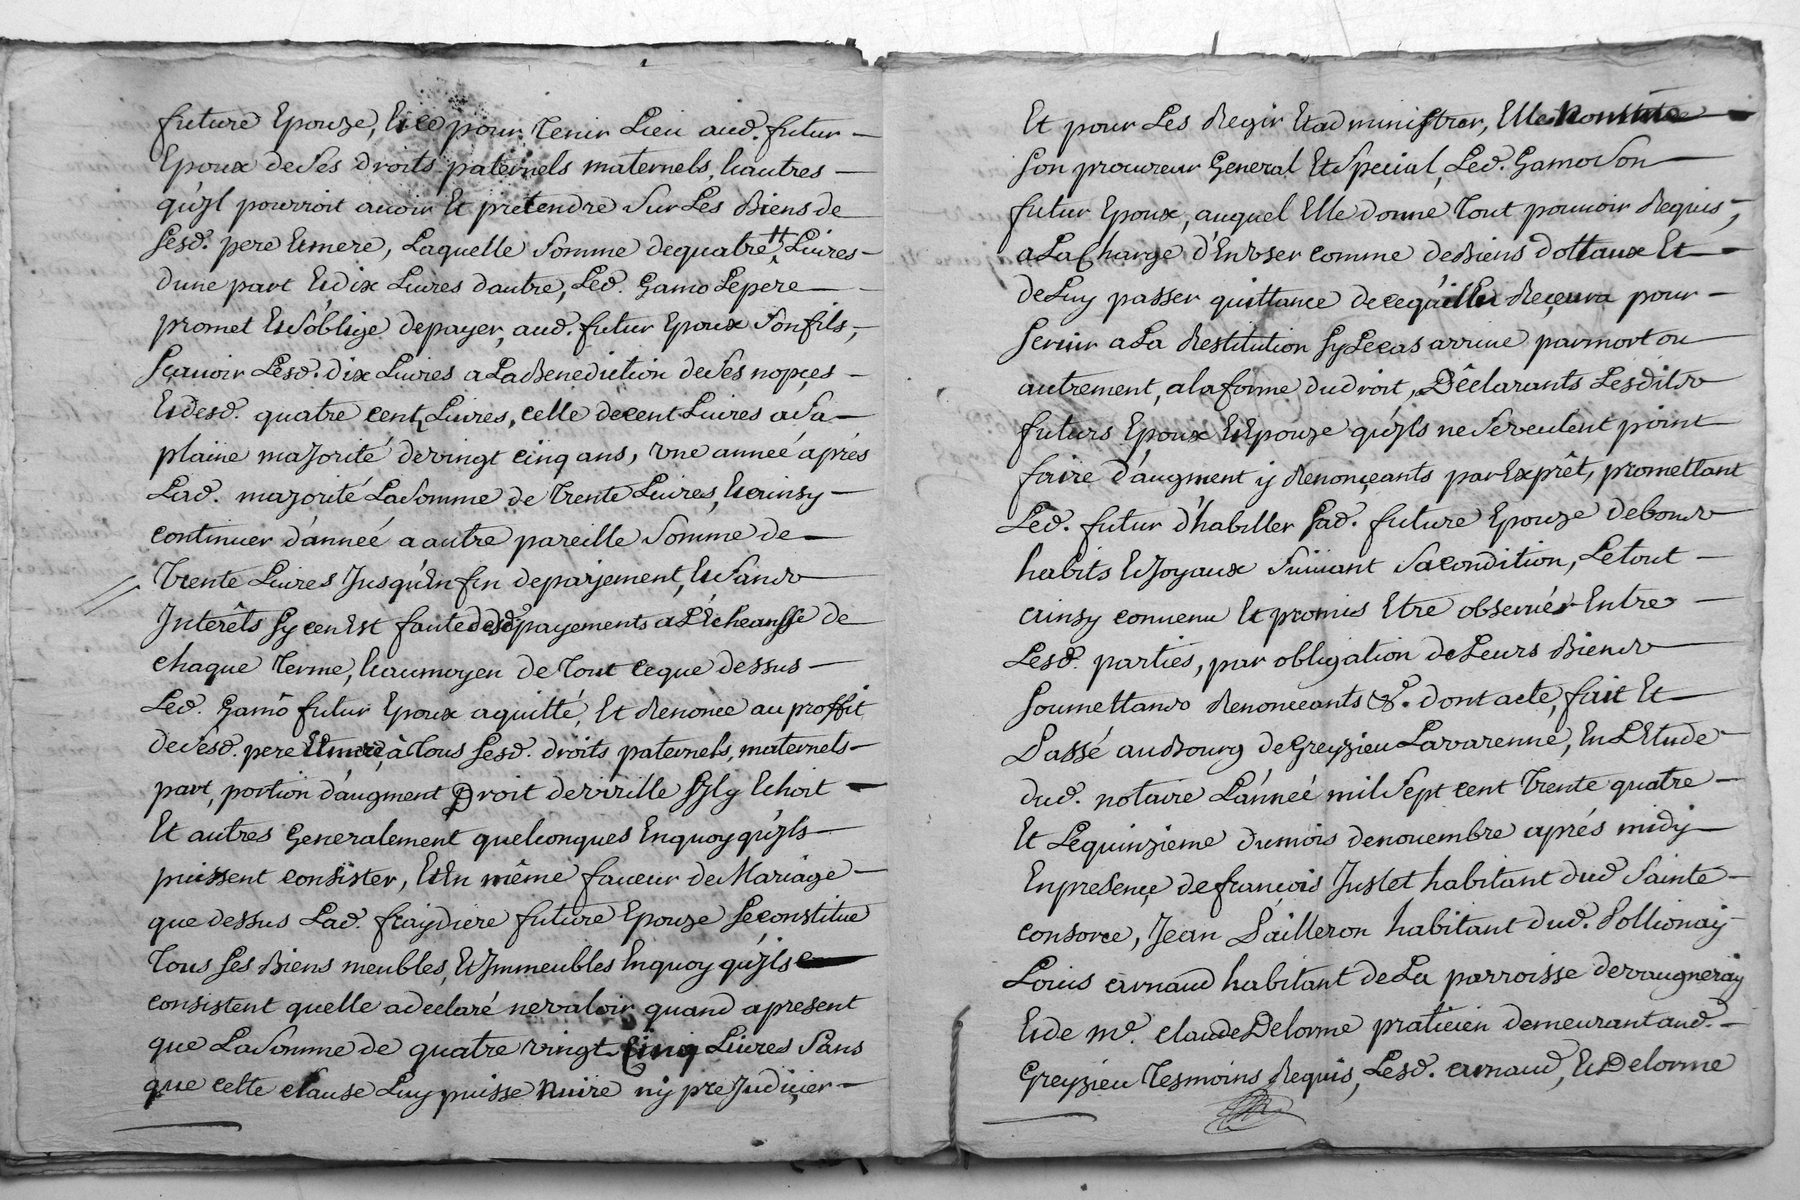 future Epouze, Et ce pour Tenir Lieu aud. futur
Epoux de Ses Droits paternels maternels, Et autres
qu'yl pourroit avoir Et pretendre Sur Les Biens de
Sesd. pere Et mere, Laquelle Somme de quatre Livres
dune part Et dix Livres dautre, Led. Gamo Le pere
promet Et S'oblige de payer, aud. futur Epoux Son fils,
Sçavoir Lesd. dix Livres a La Benediction de Ses nopçes
Et Lesd. quatre cent Livres, celle de cent Livres a Sa
plaine majorité de vingt cinq ans, une anneé áprés
Lad. majorité La Somme de Trente Livres, Et ainsy
continuer d'anneé a autre pareille Somme de
Trente Livres Jusqu'En fin de paijement, Et Sans
Interêts Sy cen Est faute desd. payements a L'Echeansse de
chaque Terme, Et aumoyen de Tout ceque dessus
Led. Gamô futur Epoux a quitté, Et Renoncé au proffit
de Sesd. pere Et mere, à Tous Sesd. droits paternels, maternels
part, portion d'augment Droit de virille S'yl y Echoit
Et autres Generalement quelconques En quoy qu'yls
puissent consister, Et En même faveur de Mariage
que dessus Lad. fraydiere future Epouze Se constitue
Tous Ses Biens meubles, Et Immeubles En quoy qu'yls
consistent quelle a declaré ne valoir quand a present
que La Somme de quatre vingt Cinq Livres Sans
que cette clause Luy puisse nuire ny preJudiçier
Et pour Les Regir Et administrer, Elle Nomme
Son procureur General Et Special, Led. Gamo Son
futur Epoux, auquel Elle donne Tout pouvoir Requis,
a La Charge d'En user comme de Biens dottaux Et
de Luy passer quittance de ce qu'il Reçevra pour
Servir a La Restitution Sy Le cas arrive par mort ou
autrement, a la forme du Droit, Déclarants Lesdits
futurs Epoux Et Epouze qu'yls ne Se veulent point
faire d'augment y Renonçeants par Exprêt, promettant
Led. futur d'habiller Sad. future Epouze de bons
habits Et Joyaux Suivant Sa condition, Le tout
ainsy convenu Et promis Etre observér Entre
Lesd. parties, par obligation de Leurs Biens
Soumettans Renonceants &c. dont acte, fait Et
Passé au Bourg de Greyzieu Lavarenne, En L'Etude
dud. notaire L'anneé mil Sept cent Trente quatre
Et Le quinzieme du mois de novembre aprés midy
En presençe de françois Juslet habitant dud Sainte
consorce, Jean Pailleron habitant dud. Pollionay
Louis arnaud habitant de La parroisse de vaugneray
Et de me. claude Delorme praticien demeurant aud.
Greyzieu Tesmoins Requis, Lesd. arnaud, Et Delorme